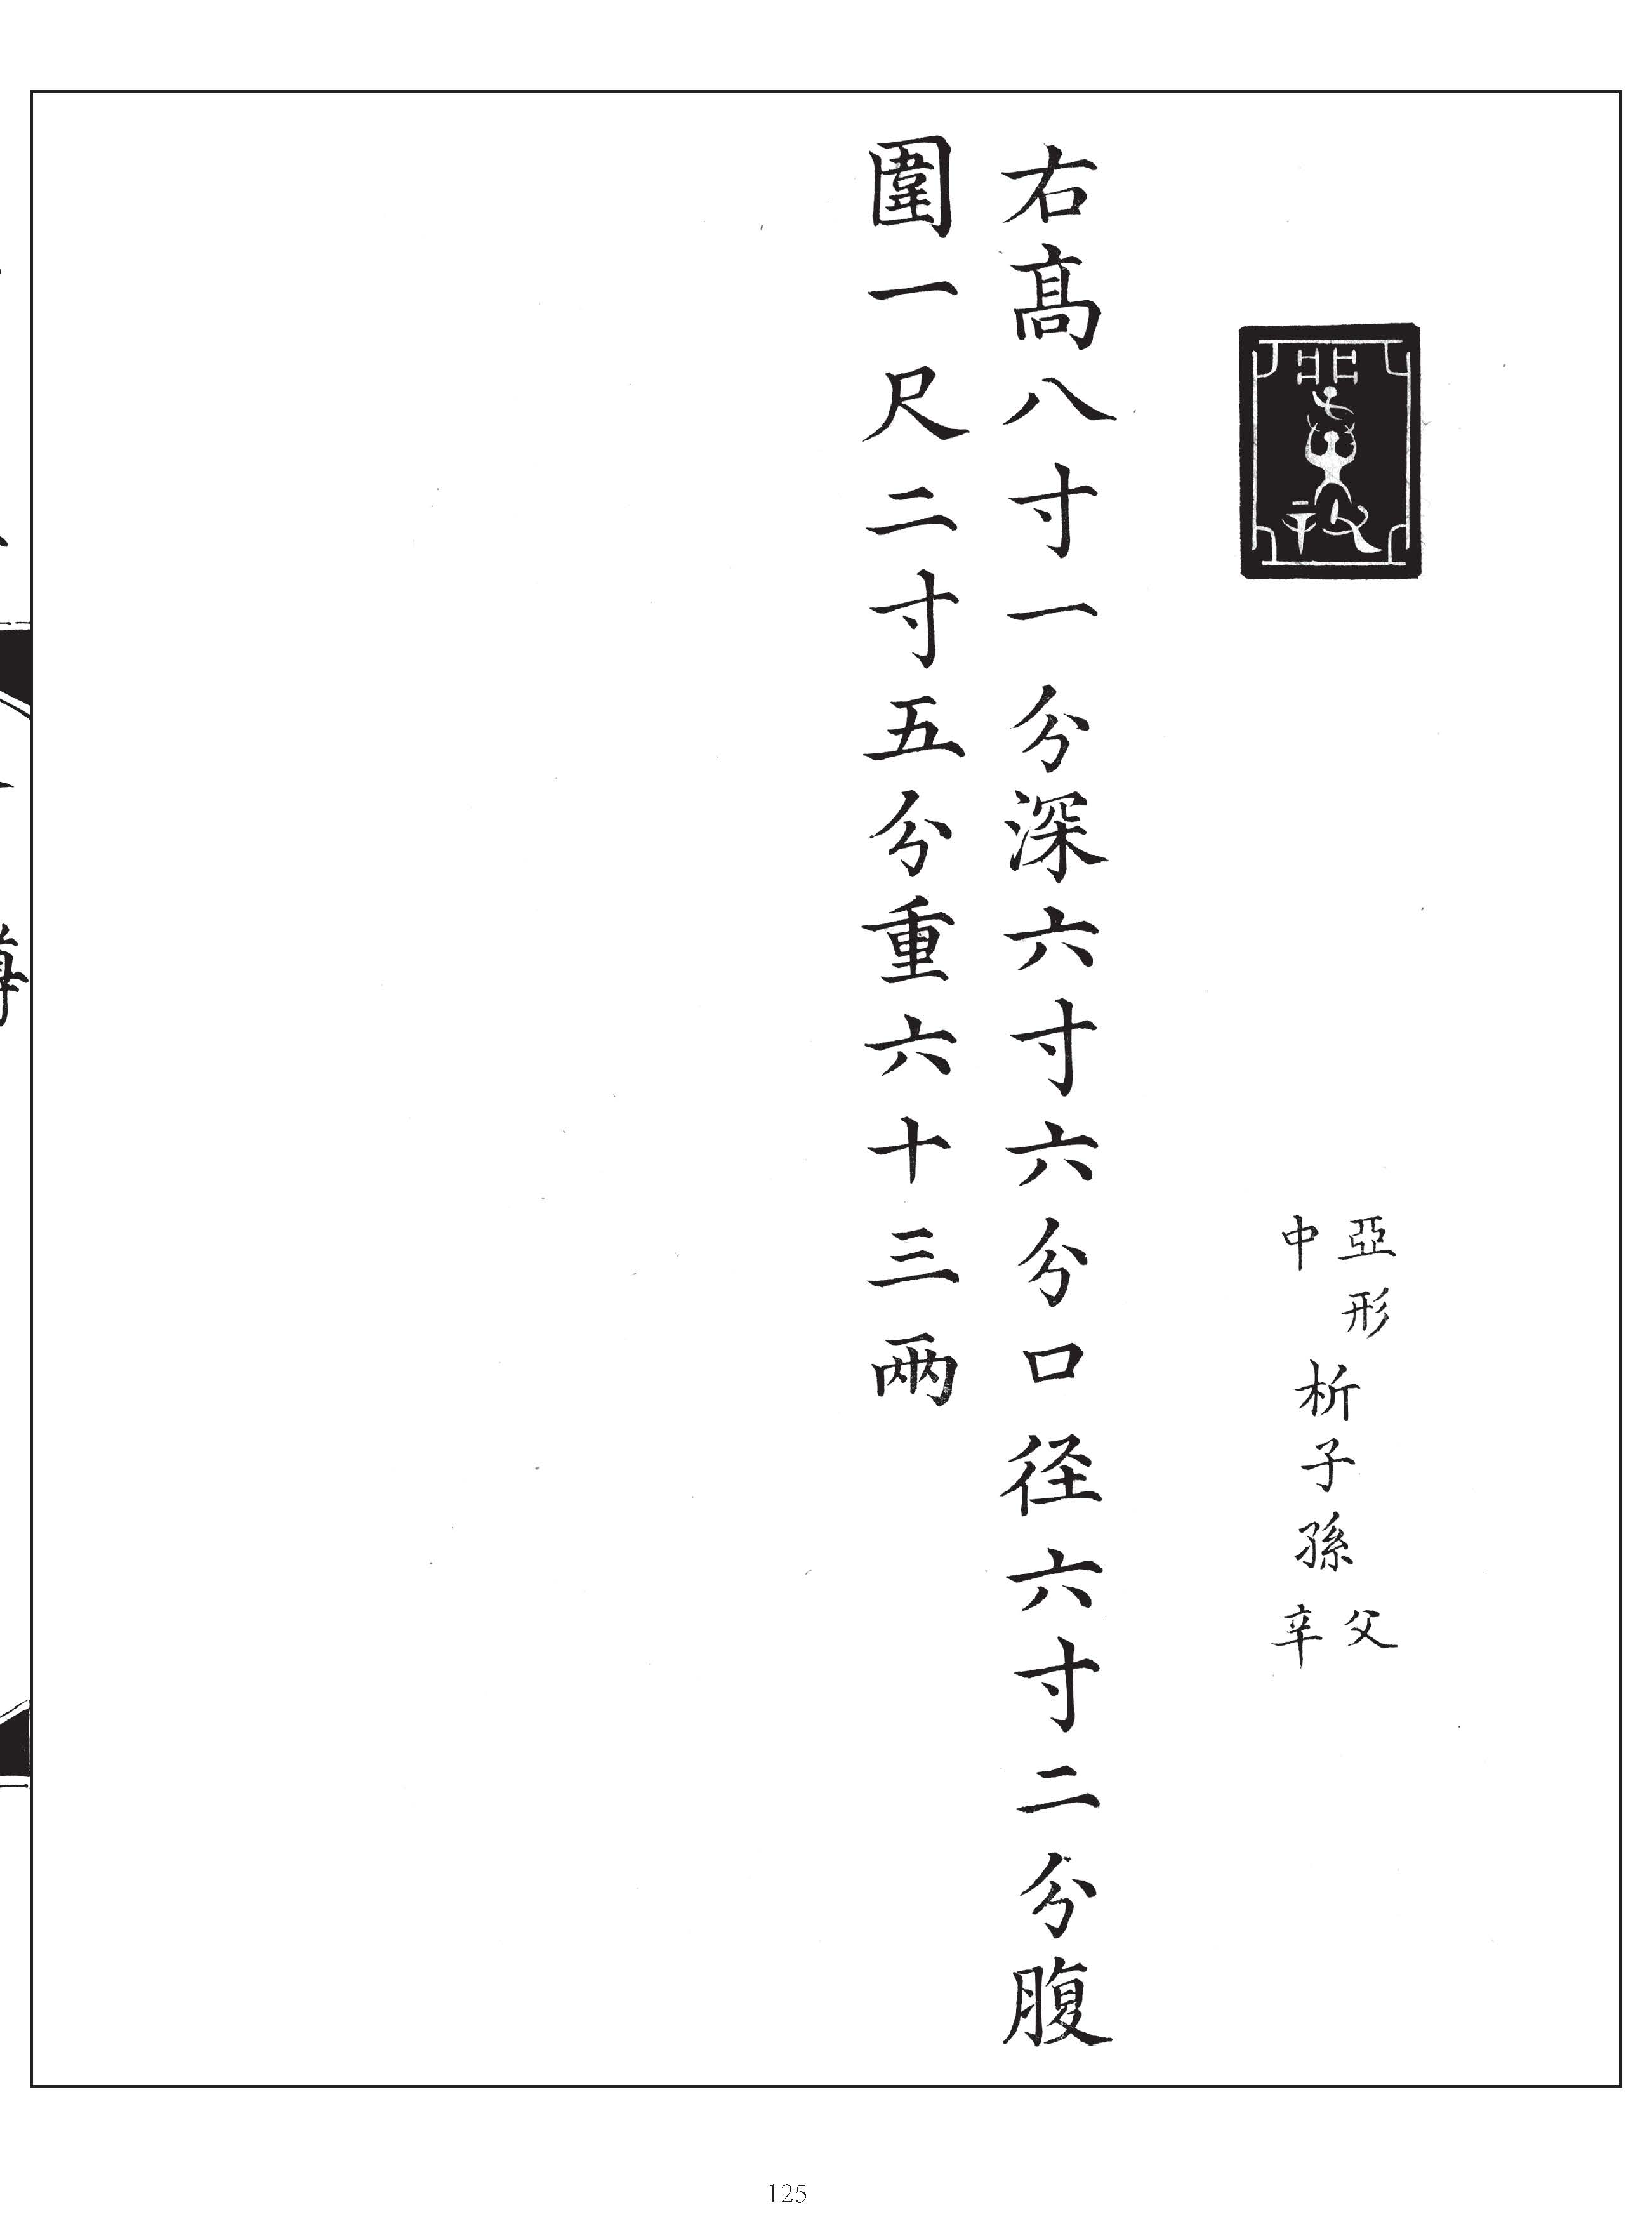 亞形
中
析子孫
父
辛
右高八寸一分深六寸六分口径六寸二分腹
圍一尺二寸五分重六十三两
125